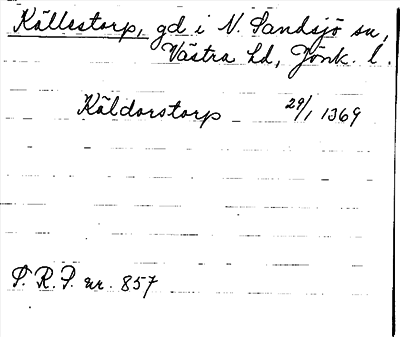 Källstorp, gd i N. Sandsjö sn,
Västra hd, Jönk. l.
Käldorstorp - 29/1 1369
S. R. P. nr. 857